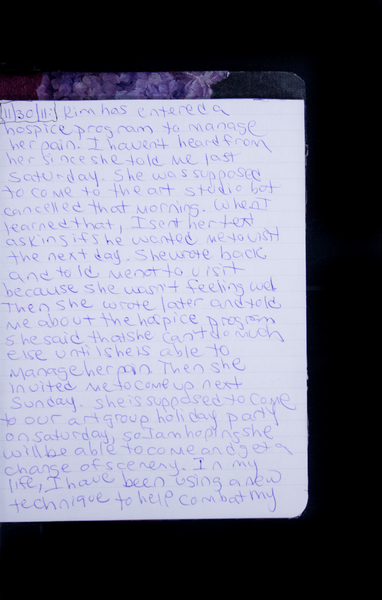 11/30/11: Kim has entered a
hospice program to manage
her pain. I haven't heard from
her since she told me last
Saturday. She was supposed
to come to the art studio but
cancelled that morning. When I
learned that, I sent her text
asking if she wanted me to visit
the next day. She wrote back
and told me not to visit
because she wasn't feeling well
Then she wrote later and told
me about the hospice program
She said that she can't do much
else until she is able to
manage her pain. Then she
invited me to come up next
Sunday. She is supposed to come
to our art group holiday party
on Saturday, so I am hoping she
will be able to come and get a
change of scenery. In my
life, I have been using a new
technique to help combat my